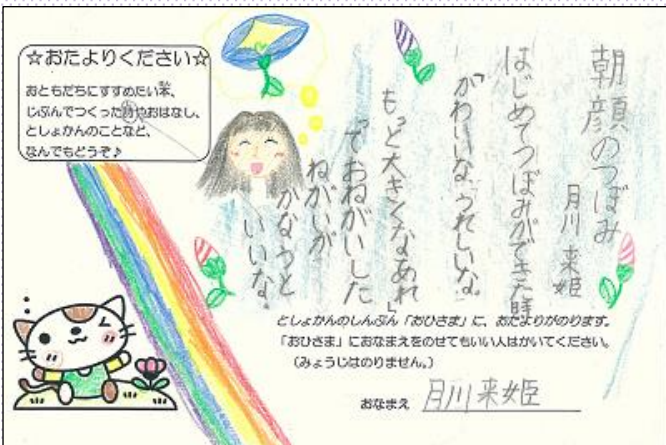 ☆おたよりください☆
おともだちにすすめたい本、
じぶんでつくった詩やおはなし、
としょかんのことなど、
なんでもどうぞ♪
朝顔のつぼみ
月川 来姫
はじめてつぼみができた時
「かわいいな うれしいな。
もっと大きくなあれ」
ておねがいした
ねがいが
かなうと
いいな。
としょかんのしんぶん「おひさま」に、おたよりがのります。
「おひさま」におなまえをのせてもいい人はかいてください。
(みょうじはのりません。)
おなまえ 月川来姫